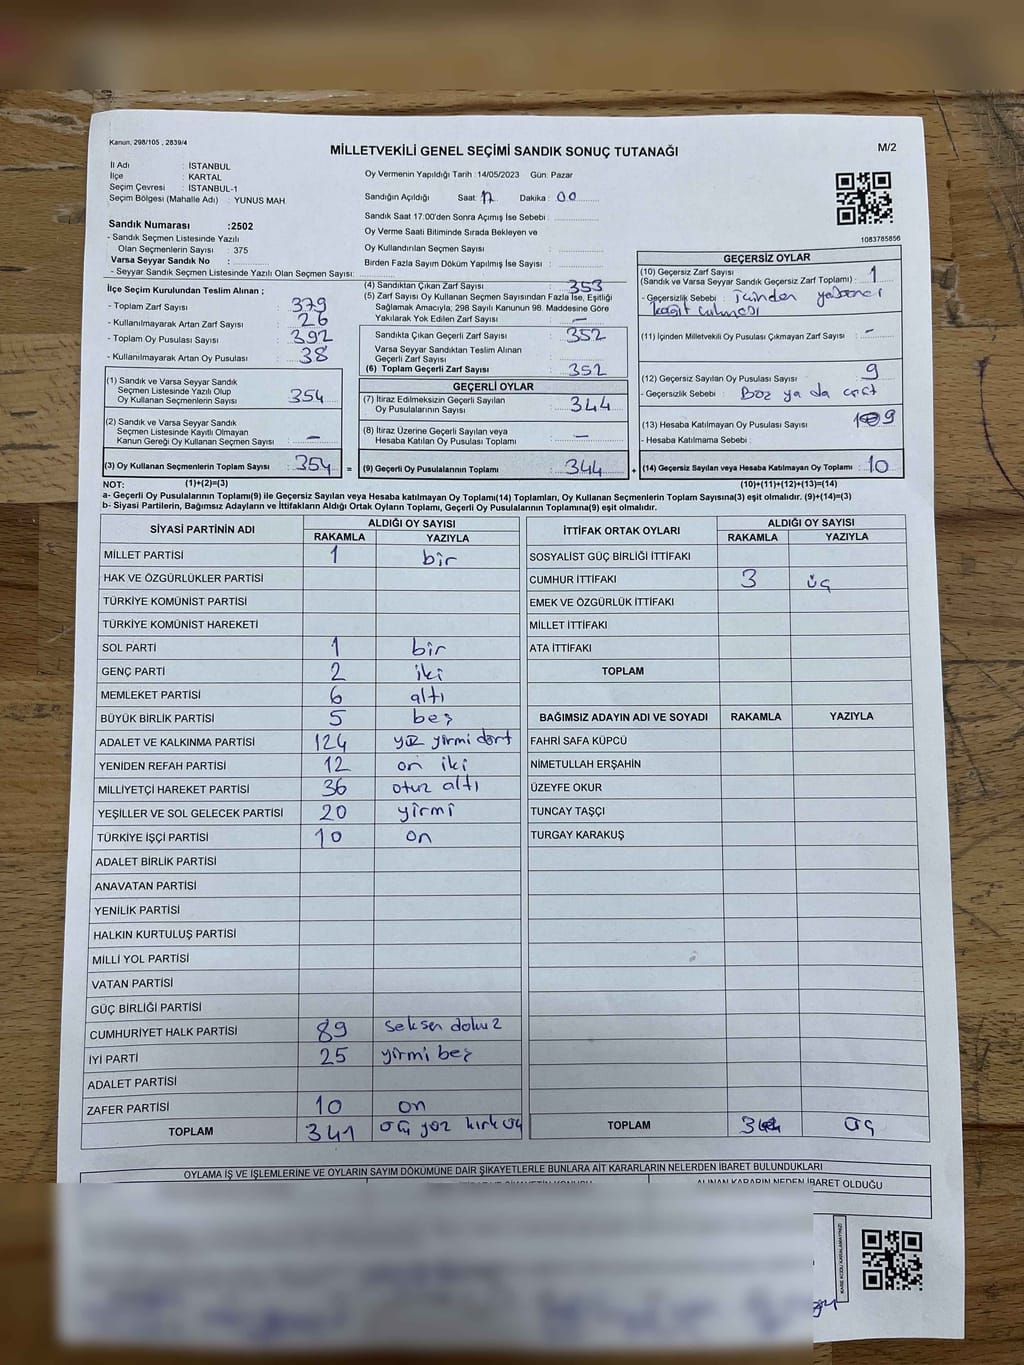 Kanun, 298/105 , 2839/4
MİLLETVEKİLİ GENEL SEÇİMİ SANDIK SONUÇ TUTANAĞI
M/2
İl Adı : İSTANBUL
İlçe : KARTAL
Seçim Çevresi : İSTANBUL-1
Seçim Bölgesi (Mahalle Adı) : YUNUS MAH
Oy Vermenin Yapıldığı Tarih : 14/05/2023 Gün: Pazar
Sandığın Açıldığı Saat: 17 Dakika: 00
Sandık Saat 17:00'den Sonra Açımış İse Sebebi :
Oy Verme Saati Bitiminde Sırada Bekleyen ve
Oy Kullandırılan Seçmen Sayısı :
Birden Fazla Sayım Döküm Yapılmış İse Sayısı :
1083785856
Sandık Numarası :2502
- Sandık Seçmen Listesinde Yazılı
Olan Seçmenlerin Sayısı : 375
Varsa Seyyar Sandık No :
- Seyyar Sandık Seçmen Listesinde Yazılı Olan Seçmen Sayısı:
İlçe Seçim Kurulundan Teslim Alınan ;
- Toplam Zarf Sayısı : 379
- Kullanılmayarak Artan Zarf Sayısı : 26
- Toplam Oy Pusulası Sayısı : 392
- Kullanılmayarak Artan Oy Pusulası : 38
(1) Sandık ve Varsa Seyyar Sandık
Seçmen Listesinde Yazılı Olup
Oy Kullanan Seçmenlerin Sayısı : 354
(2) Sandık ve Varsa Seyyar Sandık
Seçmen Listesinde Kayıtlı Olmayan
Kanun Gereği Oy Kullanan Seçmen Sayısı : -
(3) Oy Kullanan Seçmenlerin Toplam Sayısı : 354 =
(4) Sandıktan Çıkan Zarf Sayısı : 353
(5) Zarf Sayısı Oy Kullanan Seçmen Sayısından Fazla İse, Eşitliği
Sağlamak Amacıyla, 298 Sayılı Kanunun 98. Maddesine Göre
Yakılarak Yok Edilen Zarf Sayısı : -
Sandıkta Çıkan Geçerli Zarf Sayısı : 352
Varsa Seyyar Sandıktan Teslim Alınan
Geçerli Zarf Sayısı :
(6) Toplam Geçerli Zarf Sayısı : 352
GEÇERLİ OYLAR
(7) İtiraz Edilmeksizin Geçerli Sayılan
Oy Pusulalarının Sayısı : 344
(8) İtiraz Üzerine Geçerli Sayılan veya
Hesaba Katılan Oy Pusulası Toplamı : -
(9) Geçerli Oy Pusulalarının Toplamı : 344 +
GEÇERSİZ OYLAR
(10) Geçersiz Zarf Sayısı
(Sandık ve Varsa Seyyar Sandık Geçersiz Zarf Toplamı) : 1
- Geçersizlik Sebebi : içinden yabancı
kağıt çıkması
(11) İçinden Milletvekili Oy Pusulası Çıkmayan Zarf Sayısı : -
(12) Geçersiz Sayılan Oy Pusulası Sayısı : 9
- Geçersizlik Sebebi : Boş ya da çift
(13) Hesaba Katılmayan Oy Pusulası Sayısı : 9
- Hesaba Katılmama Sebebi :
(14) Geçersiz Sayılan veya Hesaba Katılmayan Oy Toplamı : 10
NOT: (1)+(2)=(3) (10)+(11)+(12)+(13)=(14)
a- Geçerli Oy Pusulalarının Toplamı(9) ile Geçersiz Sayılan veya Hesaba katılmayan Oy Toplamı(14) Toplamları, Oy Kullanan Seçmenlerin Toplam Sayısına(3) eşit olmalıdır. (9)+(14)=(3)
b- Siyasi Partilerin, Bağımsız Adayların ve İttifakların Aldığı Oyların Toplamı, Geçerli Oy Pusulalarının Toplamına(9) eşit olmalıdır.
SİYASİ PARTİNİN ADI ALDIĞI OY SAYISI
RAKAMLA YAZIYLA
MİLLET PARTİSİ 1 bir
HAK VE ÖZGÜRLÜKLER PARTİSİ
TÜRKİYE KOMÜNİST PARTİSİ
TÜRKİYE KOMÜNİST HAREKETİ
SOL PARTİ 1 bir
GENÇ PARTİ 2 iki
MEMLEKET PARTİSİ 6 altı
BÜYÜK BİRLİK PARTİSİ 5 beş
ADALET VE KALKINMA PARTİSİ 124 yüz yirmi dört
YENİDEN REFAH PARTİSİ 12 on iki
MİLLİYETÇİ HAREKET PARTİSİ 36 otuz altı
YEŞİLLER VE SOL GELECEK PARTİSİ 20 yirmi
TÜRKİYE İŞÇİ PARTİSİ 10 on
ADALET BİRLİK PARTİSİ
ANAVATAN PARTİSİ
YENİLİK PARTİSİ
HALKIN KURTULUŞ PARTİSİ
MİLLİ YOL PARTİSİ
VATAN PARTİSİ
GÜÇ BİRLİĞİ PARTİSİ
CUMHURİYET HALK PARTİSİ 89 seksen dokuz
İYİ PARTİ 25 yirmi beş
ADALET PARTİSİ
ZAFER PARTİSİ 10 on
TOPLAM 341 üç yüz kırk
İTTİFAK ORTAK OYLARI ALDIĞI OY SAYISI
RAKAMLA YAZIYLA
SOSYALİST GÜÇ BİRLİĞİ İTTİFAKI
CUMHUR İTTİFAKI 3 üç
EMEK VE ÖZGÜRLÜK İTTİFAKI
MİLLET İTTİFAKI
ATA İTTİFAKI
TOPLAM
BAĞIMSIZ ADAYIN ADI VE SOYADI RAKAMLA YAZIYLA
FAHRİ SAFA KÜPCÜ
NİMETULLAH ERŞAHİN
ÜZEYFE OKUR
TUNCAY TAŞÇI
TURGAY KARAKUŞ
TOPLAM üç
OYLAMA İŞ VE İŞLEMLERİNE VE OYLARIN SAYIM DÖKÜMÜNE DAİR ŞİKAYETLERLE BUNLARA AİT KARARLARIN NELERDEN İBARET BULUNDUKLARI
ALINAN KARARIN NEDEN İBARET OLDUĞU